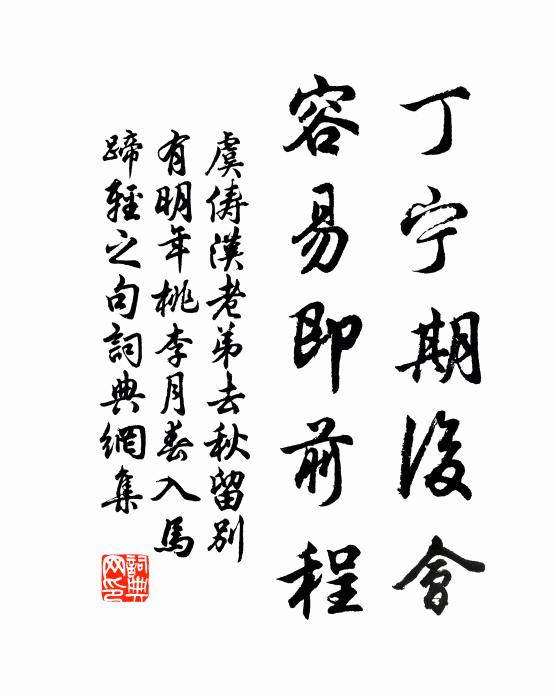 丁宁期後會
容易即前程
虞儔漢老弟去秋留別
有明年桃李月春入馬
蹄輕之句詞典網集
詞典
网印